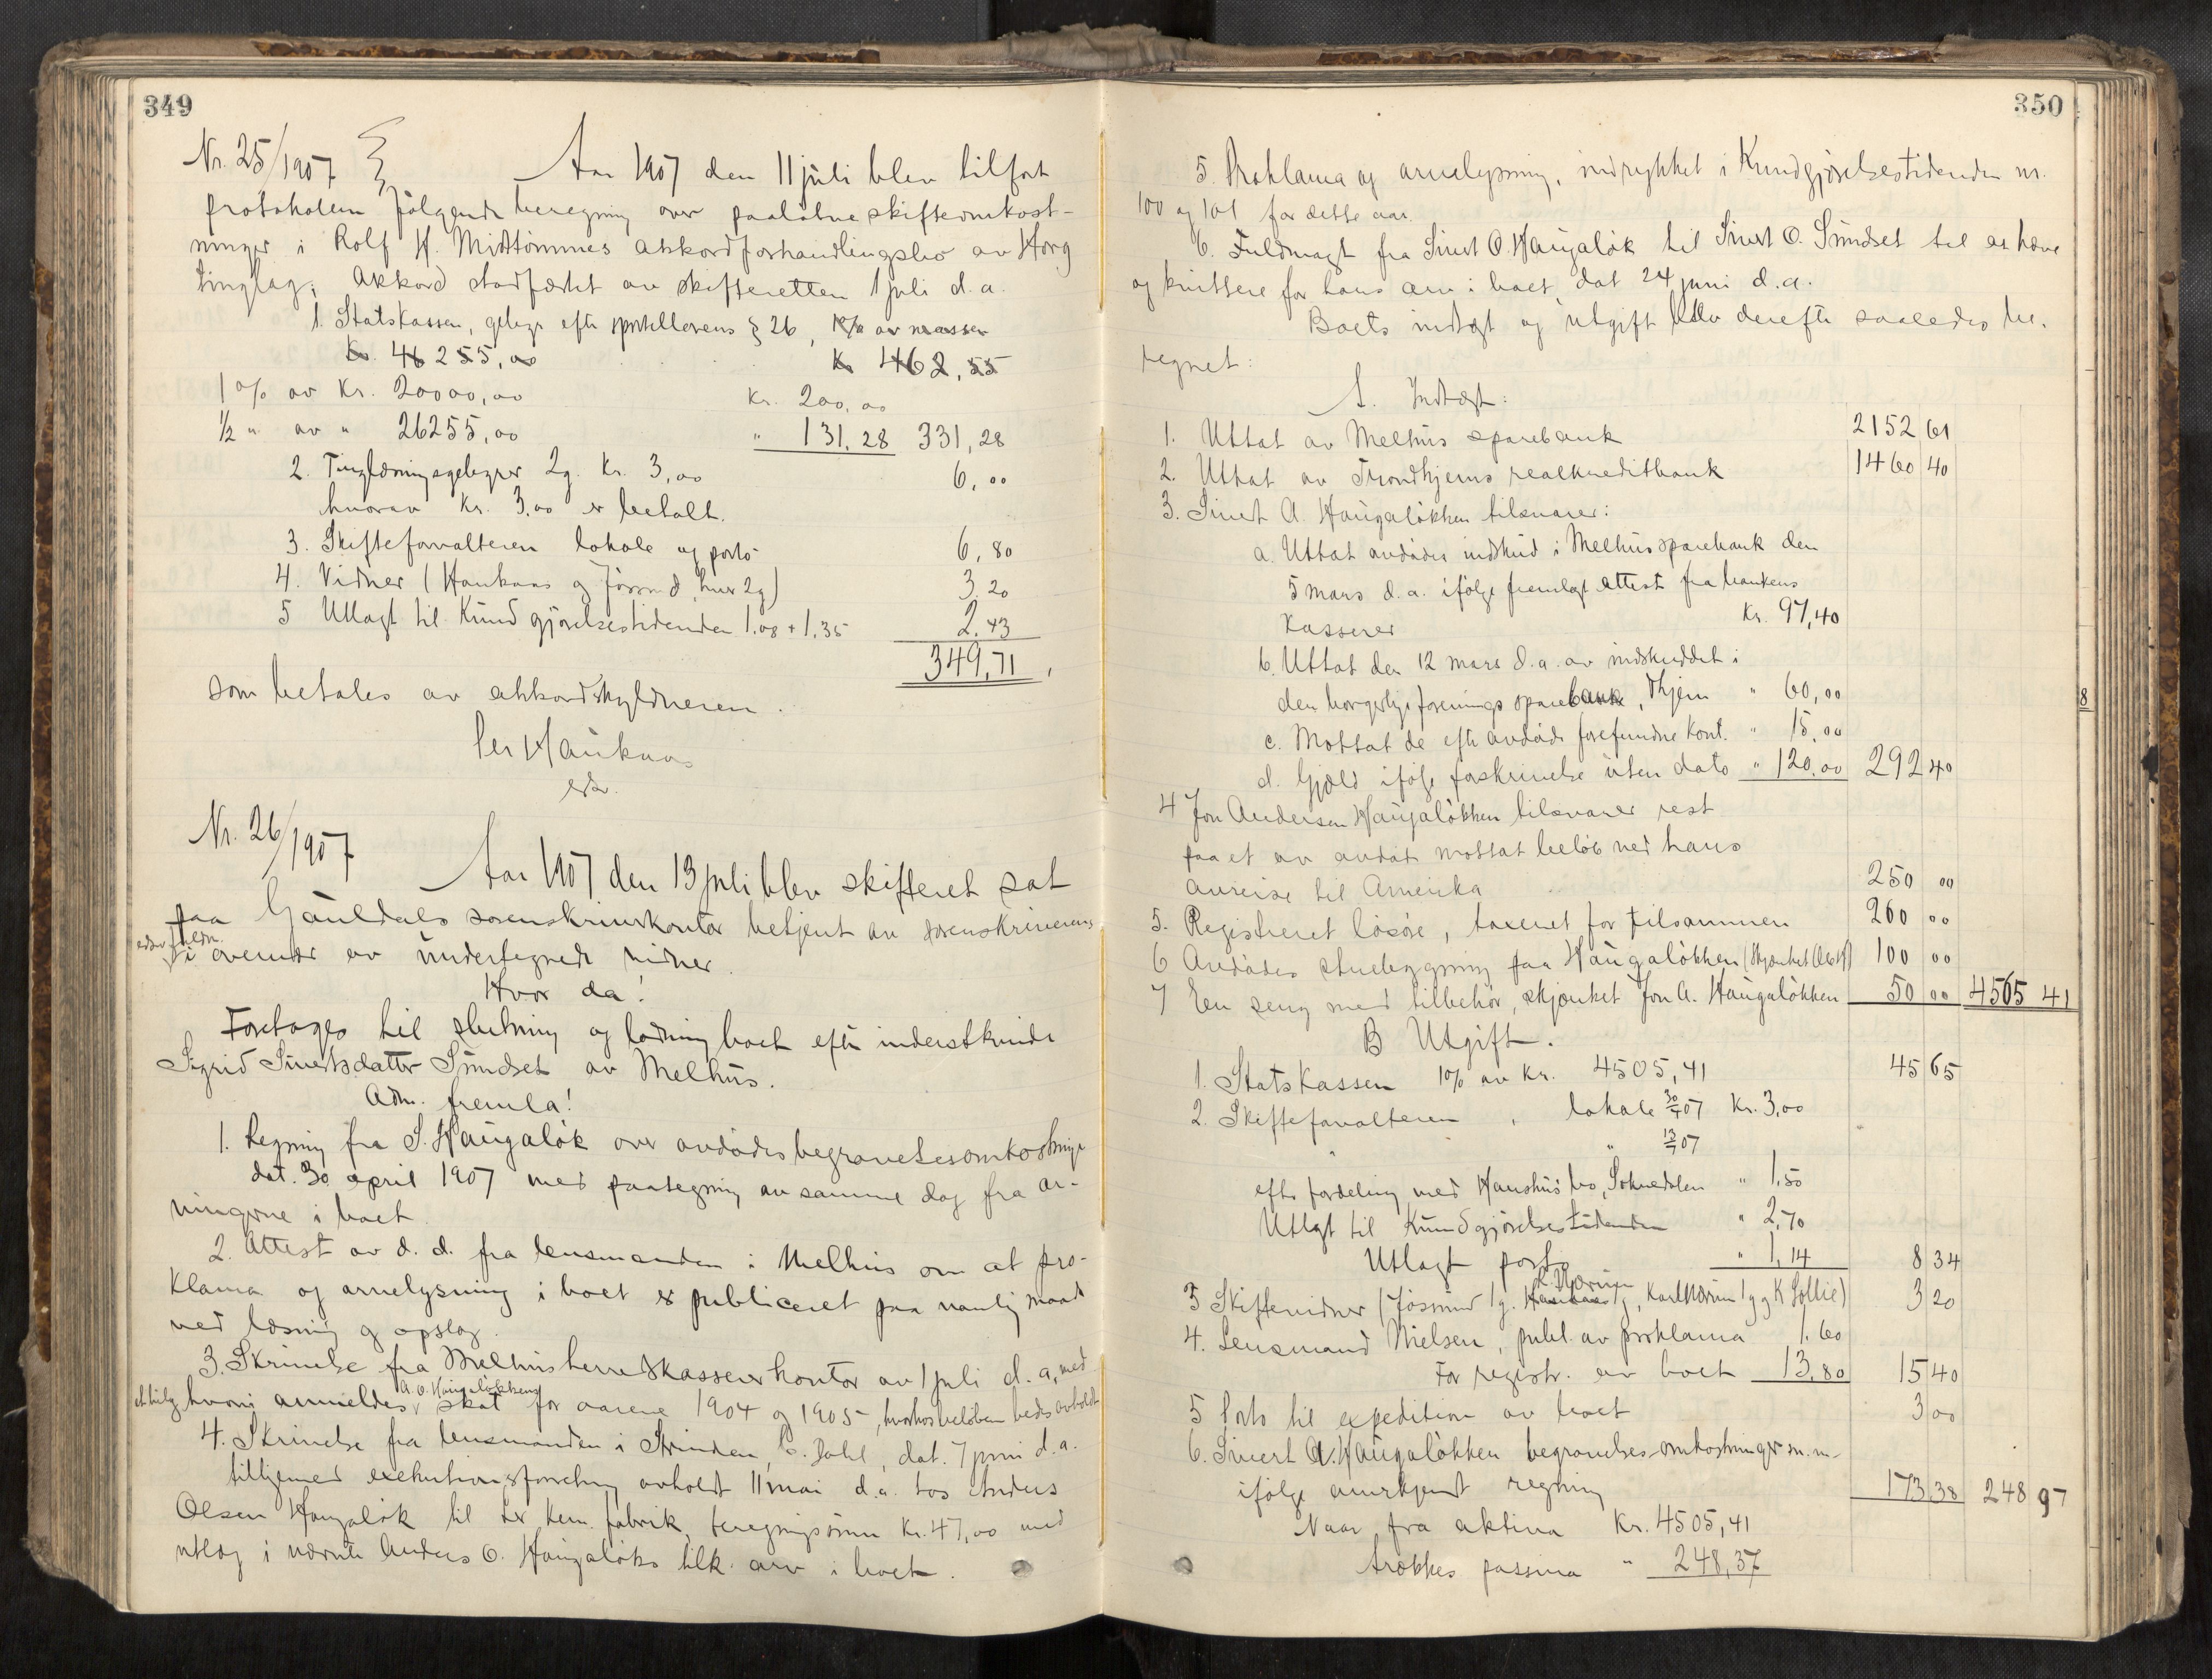 349
Nr. 25/1907
Aar 1907 den 11 juli blev tilført
protokolen følgende beregning over paaløbne skifteomkost-
ninger i Rolf H. Midttømmes akkordforhandlingsbo av Horg
tinglag; Akkord stadfæstet av skifteretten 1 juli d.a.
1. Statskassen, gebyr efter sportellovens § 26, 1% av massen
Kr. 46 255,00 Kr 462,55
1% av Kr. 20000,00 Kr. 200,00
1/2 " av " 26255,00 " 131,28 331,28
2. Tinglæsningsgebyrer 2g. Kr. 3,00 6,00
hvorav Kr. 3,00 er betalt.
3. Skifteforvalteren lokale og porto 6,80
4. Vidner (Haukaas og Jøsund, hver 2g) 3,20
5 Utlagt til Kundgjørelsestidenden 1,08 + 1,35 2,43
349,71,
som betales av akkordskyldneren.
Per Haukaas
edsv.
Nr. 26/1907
Aar 1907 den 13 juli blev skifteret sat
paa Gauldals sorenskriverkontor betjent av sorenskriverens
edsv. fuldm. i overvær av undertegnede vidner.
Hvor da!
Foretages til slutning og lodning boet efter inderstkvinde
Sigrid Sivertsdatter Sundset av Melhus.
Adm. fremla!
1. Regning fra S. Haugaløk over avdødes begravelsesomkostninger
dat. 30 april 1907 med paategning av samme dag fra ar-
vingerne i boet.
2. Attest av d. d. fra lensmanden i Melhus om at pro-
klama og arvelysning i boet er publiceret paa vanlig maate
ved læsning og opslag.
3. Skrivelse fra Melhus herredskassererkontor av 1 juli d. a., med
et bilag hvori anmeldes A. O. Haugaløkkens skat for aarene 1904 og 1905, hvorhos beløben bedes avholdt
4. Skrivelse fra lensmanden i Strinden, C. Dahl, dat. 7 juni d.a.
tilligemed exekutionsforretning avholdt 11 mai d.a. hos Anders
Olsen Haugaløk til kem. fabrik, beregningssum Kr. 47,00 med
utlæg i nævnte Anders O. Haugaløks tilk. arv i boet.
350
5. Proklama og arvelysning, indrykket i Kundgjørelsestidenden nr.
100 og 101 for dette aar.
6. Fuldmagt fra Sivert O. Haugaløk til Sivert O. Sundset til at hæve
og kvittere for hans arv i boet, dat 24 juni d.a.
Boets indtægt og utgift blev derefter saaledes be-
regnet:
A. Indtægt:
1. Uttat av Melhus sparebank 2152 61
2. Uttat av Trondhjems realkreditbank 1460 40
3. Sivert A. Haugaløkken tilsvarer:
a. Uttat avdødes indskud i Melhus sparebank den
5 mars d. a. ifølge fremlagt attest fra bankens
kasserer Kr. 97,40
b. Uttat den 12 mars d.a. av indskuddet i
den borgerlige forenings sparebank, Thjem " 60,00
c. Mottat de efter avdøde forefundne kont. " 15,00
d. Gjæld ifølge forskrivelse uten dato " 120,00 292 40
4 Jon Andersen Haugaløkken tilsvarer rest
paa et av avdøde mottat beløb ved hans
avreise til Amerika 250 00
5. Registreret løsøre, taxeret for tilsammen 200 00
6 Avdødes stuebygning paa Haugaløkken 100 00
7 En seng med tilbehør, skjænket Jon A. Haugaløkken 50 00 4505 41
B Utgift.
1. Statskassen 1% av Kr. 4505,41 45 65
2. Skifteforvalteren, lokale 30/4 07 Kr. 3,00
" " 13/7 07
efter fordeling med Haushus bo, Soknedalen " 1,50
Utlagt til Kundgjørelsestidenden " 2,70
Utlagt porto " 1,14 8 34
3 Skiftevidner (Jøsund 1g. Karl Nærum 1g og K Sollie) 3 20
4. Lensmand Nielsen, publ. av proklama 1.60
For registr. av boet 13,80 15 40
5 Porto til expedition av boet 3 00
6. Sivert A. Haugaløkken begravelsesomkostninger m.m.
ifølge anerkjendt regning 173,38 248 97
Naar fra aktiva Kr. 4505,41
trækkes passiva " 248,37
8